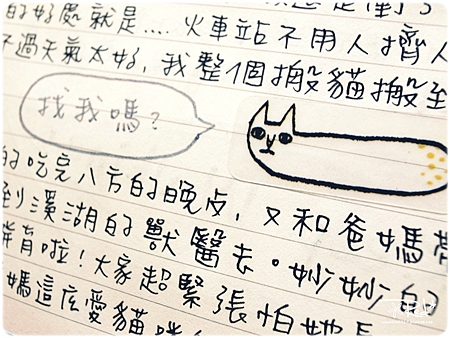 的好處就是.... 火車站不用人擠人
不過天氣太好,我整個搬貓搬至
找我嗎?
的吃完八方的晚点,又和爸媽帶
到溪湖的獸醫去。妙妙的
啦!大家超緊張怕她
媽這庅愛貓咪